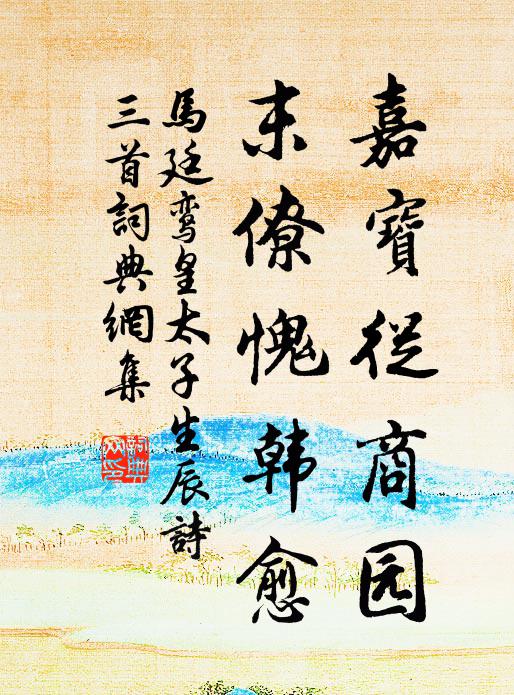 嘉寶從商园
末僚愧韩愈
馬廷鸾皇太子生辰詩
三首詞典網集